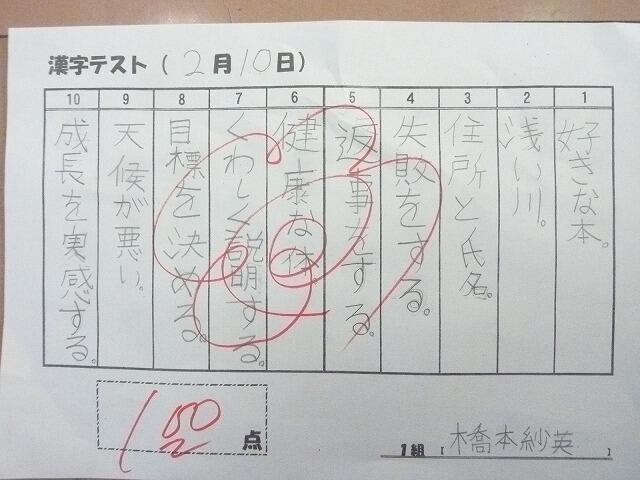 漢字テスト(2月10日)
1
好きな本。
2
浅い川。
3
住所と氏名。
4
失敗をする。
5
返事をする。
6
健康な体
7
くわしく説明する。
8
目標を決める。
9
天候が悪い。
10
成長を実感する。
150点
1組【橋本紗英】